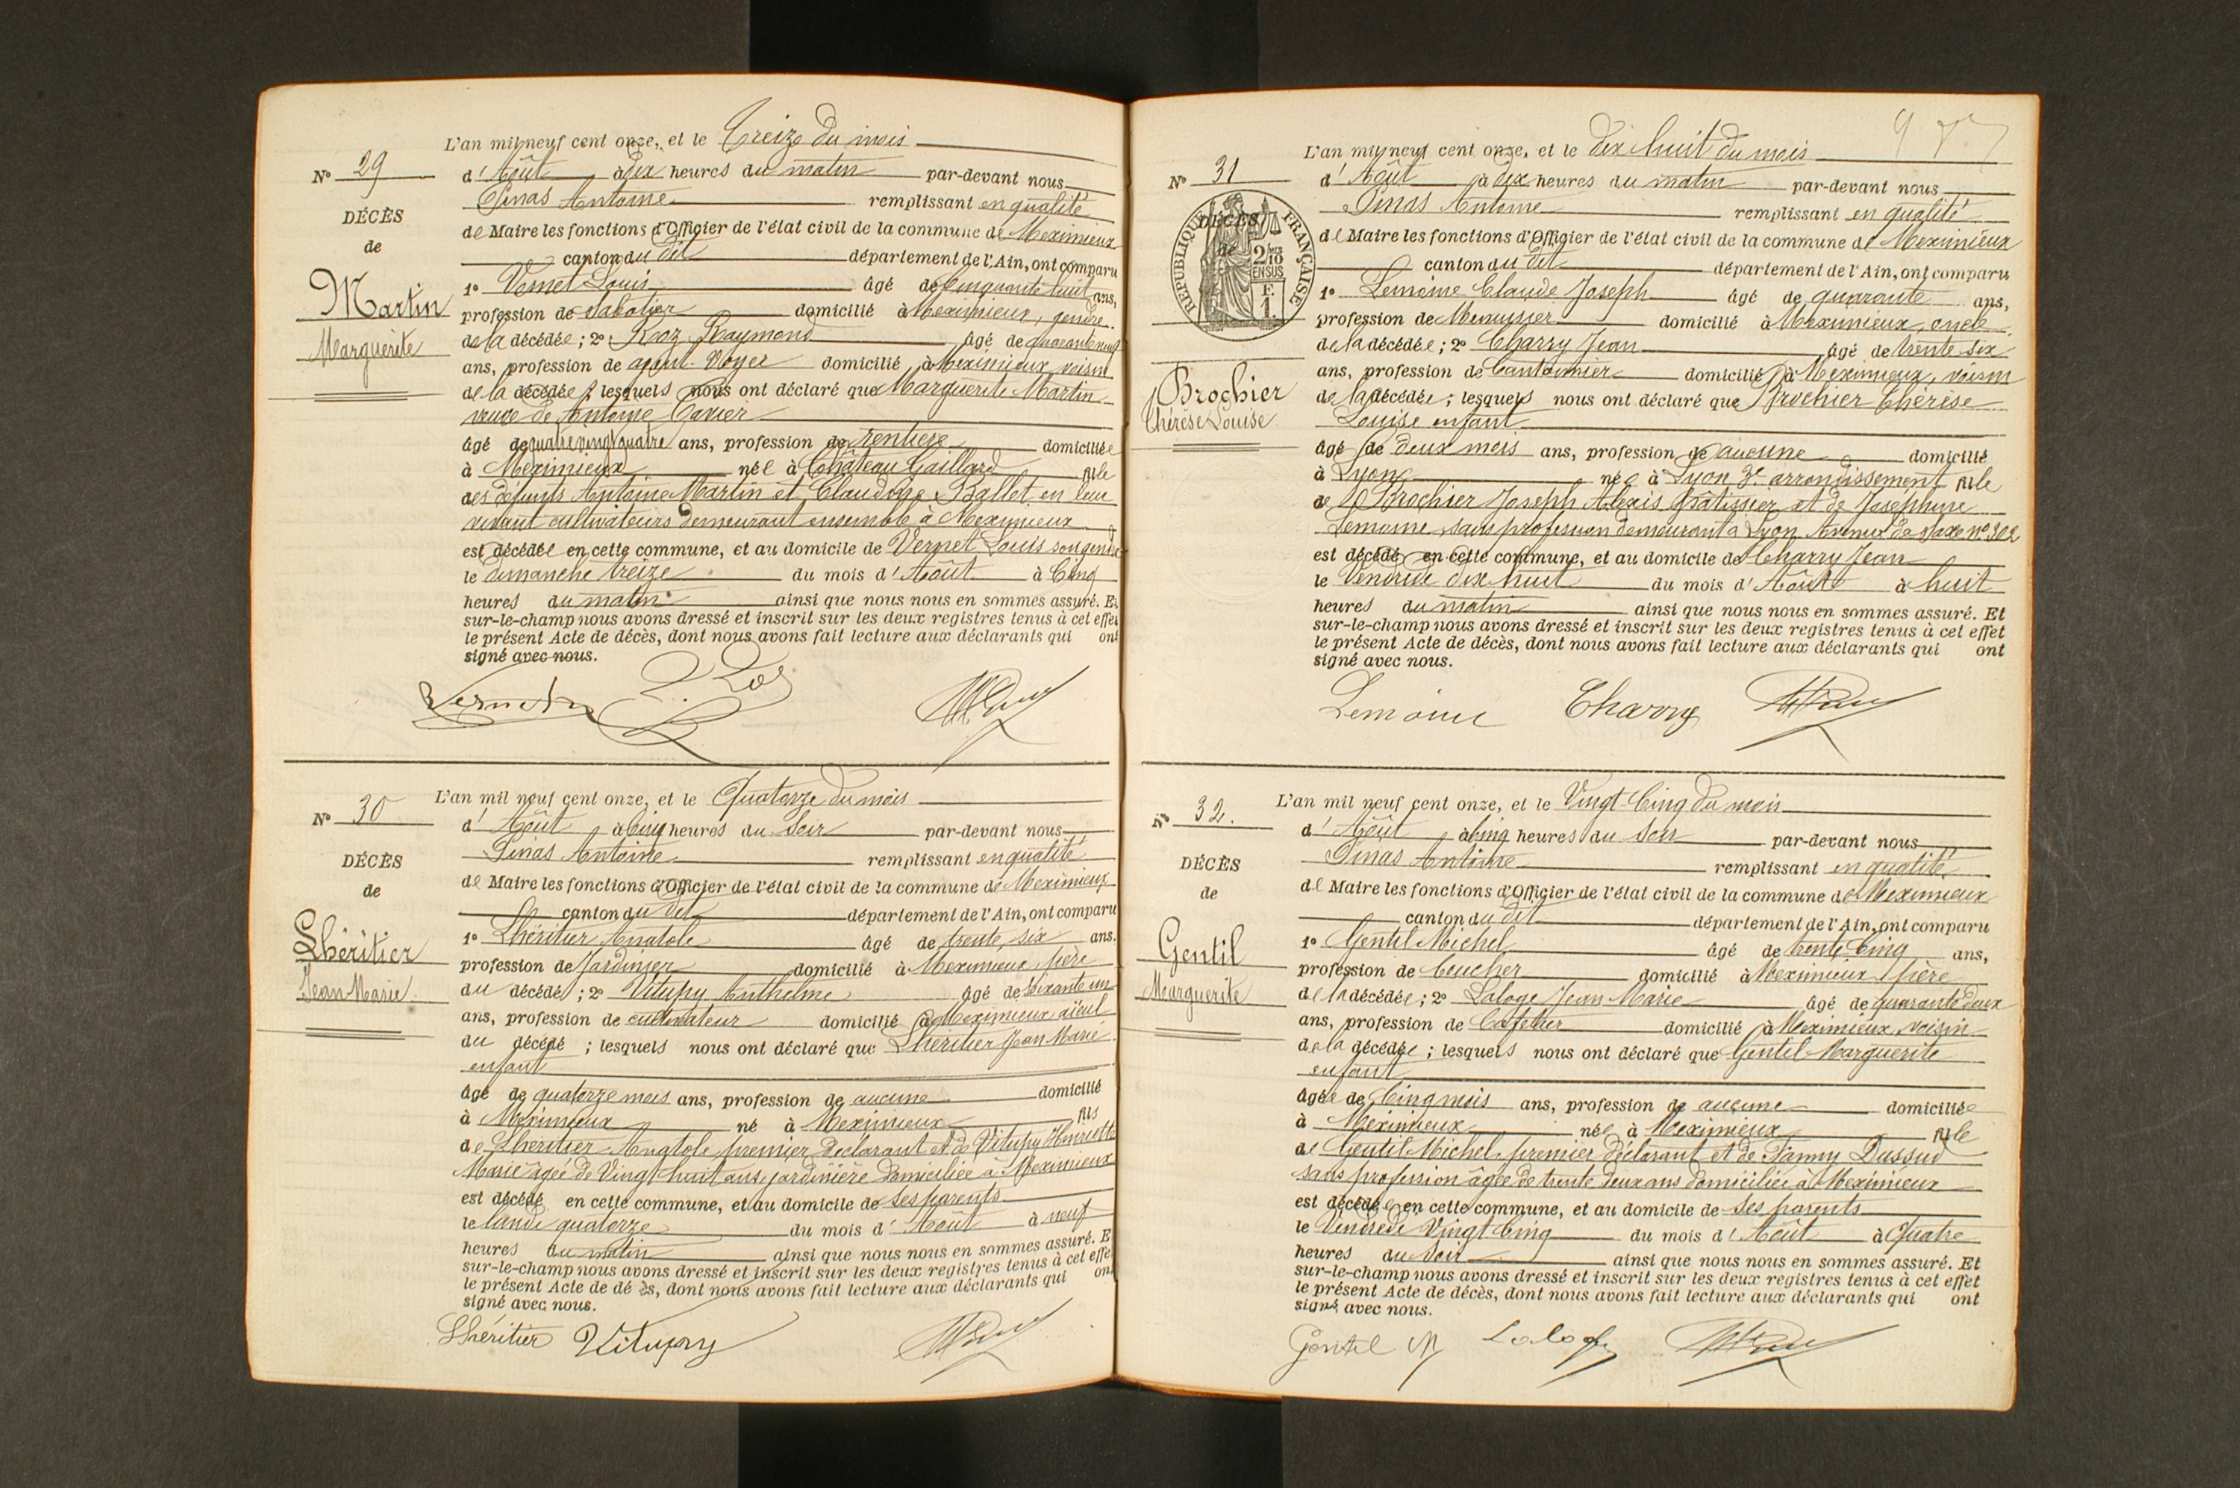 L'an mil neuf cent onze, et le Treize du mois
N° 29
d'Août à dix heures du matin par-devant nous
Pinas Antoine remplissant en qualité
DÉCÈS
de Maire les fonctions d'Officier de l'état civil de la commune de Meximieux
de
canton du dit département de l'Ain, ont comparu
1° Vernet Louis âgé de Cinquante huit ans,
Martin
profession de Sabotier domicilié à Meximieux, gendre
Marguerite
de la décédée ; 2° Roz Raymond âgé de quarante neuf
ans, profession de agent-Voyer domicilié à Meximieux voisin
de la décédée ; lesquels nous ont déclaré que Marguerite Martin
veuve de Antoine
âgé de quatre vingt quatre ans, profession de rentière domiciliée
à Meximieux née à Château Gaillard fille
des défunts Antoine Martin et Claudine Ballet en leur
vivant cultivateurs demeurant ensemble à Meximieux
est décédée en cette commune, et au domicile de Vernet Louis son gendre
le dimanche treize du mois d'Août à Cinq
heures du matin ainsi que nous nous en sommes assuré. Et
sur-le-champ nous avons dressé et inscrit sur les deux registres tenus à cet effet
le présent Acte de décès, dont nous avons fait lecture aux déclarants qui ont
signé avec nous.
L'an mil neuf cent onze, et le Quatorze du mois
N° 30
d'Août à Cinq heures du Soir par-devant nous
Pinas Antoine remplissant en qualité
DÉCÈS
de Maire les fonctions d'Officier de l'état civil de la commune de Meximieux
de
canton du dit département de l'Ain, ont comparu
1° Lhéritier Anatole âgé de trente six ans.
Lhéritier
profession de Jardinier domicilié à Meximieux père
Jean Marie
du décédé ; 2° Vitupy Anthelme âgé de Soixante un
ans, profession de cultivateur domicilié à Meximieux aïeul
du décédé ; lesquels nous ont déclaré que Lhéritier Jean Marie
enfant
âgé de quatorze mois ans, profession de aucune domicilié
à Meximieux né à Meximieux fils
de Lhéritier Anatole premier Déclarant et de Vitupy Henriette
Marie âgée de Vingt huit ans jardinière domiciliée à Meximieux
est décédé en cette commune, et au domicile de ses parents
le lundi quatorze du mois d'Août à neuf
heures du matin ainsi que nous nous en sommes assuré. E
sur-le-champ nous avons dressé et inscrit sur les deux registres tenus à cet effe
le présent Acte de dé ès, dont nous avons fait lecture aux déclarants qui ont
signé avec nous.
Lhéritier Vitupy
L'an mil neuf cent onze, et le Dix huit du mois
N° 31
d'Août à dix heures du matin par-devant nous
Pinas Antoine remplissant en qualité
RÉPUBLIQUE FRANÇAISE
DÉCÈS
de
2/10 EN SUS
F. 1.
de Maire les fonctions d'Officier de l'état civil de la commune de Meximieux
canton du dit département de l'Ain, ont comparu
1° Lemoine Claude Joseph âgé de quarante ans,
profession de Menuisier domicilié à Meximieux, oncle
de la décédée ; 2° Charry Jean âgé de trente six
Brochier
ans, profession de Cantonnier domicilié à Meximieux, voisin
Thérèse Louise
de la décédée ; lesquels nous ont déclaré que Brochier Thérèse
Louise enfant
âgé de deux mois ans, profession de aucune domicilié
à Lyon née à Lyon 3e arrondissement fille
de Brochier Joseph Alexis Pâtissier et de Joséphine
Lemoine sans profession demeurant à Lyon Avenue de Saxe n° 302
est décédé en cette commune, et au domicile de Charry Jean
le Vendredi dix huit du mois d'Août à huit
heures du matin ainsi que nous nous en sommes assuré. Et
sur-le-champ nous avons dressé et inscrit sur les deux registres tenus à cet effet
le présent Acte de décès, dont nous avons fait lecture aux déclarants qui ont
signé avec nous.
Lemoine Charry
L'an mil neuf cent onze, et le Vingt-Cinq du mois
N° 32.
d'Août à Cinq heures du Soir par-devant nous
Pinas Antoine remplissant en qualité
DÉCÈS
de Maire les fonctions d'Officier de l'état civil de la commune de Meximieux
de
canton du dit département de l'Ain, ont comparu
1° Gentil Michel âgé de trente Cinq ans,
Gentil
profession de Boucher domicilié à Meximieux père
Marguerite
de la décédée ; 2° Laloge Jean Marie âgé de quarante deux
ans, profession de Cafetier domicilié à Meximieux voisin
de la décédée ; lesquels nous ont déclaré que Gentil Marguerite
enfant
âgée de Cinq mois ans, profession de aucune domiciliée
à Meximieux née à Meximieux fille
de Gentil Michel premier déclarant et de Fanny Dussud
sans profession âgée de trente deux ans domiciliée à Meximieux
est décédée en cette commune, et au domicile de ses parents
le Vendredi Vingt Cinq du mois d'Août à Quatre
heures du soir ainsi que nous nous en sommes assuré. Et
sur-le-champ nous avons dressé et inscrit sur les deux registres tenus à cet effet
le présent Acte de décès, dont nous avons fait lecture aux déclarants qui ont
signé avec nous.
Gentil M Laloge